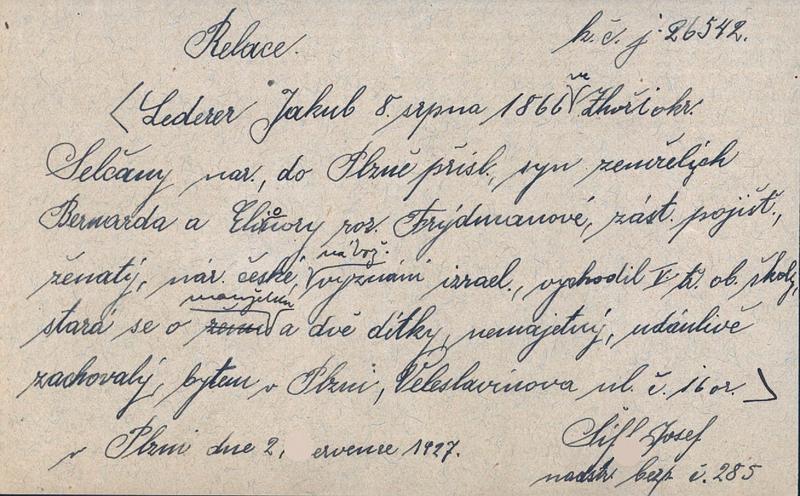 Relace. k. č. j 26542.
Lederer Jakub 8. srpna 1866 ve Zhoři okr.
Selčany nar., do Plzně přísl., syn zemřelých
Bernarda a Eleonory roz. Frýdmanové, zást. pojišť.,
ženatý, nár. české, nábož. vyznání izrael., vychodil V tř. ob. školy,
stará se o manželku a dvě dítky, nemajetný, udánlivě
zachovalý, bytem v Plzni, Veleslavínova ul. č. 16 or.
v Plzni dne 2. ervence 1927. Josef
nadstr. bezp. č. 285